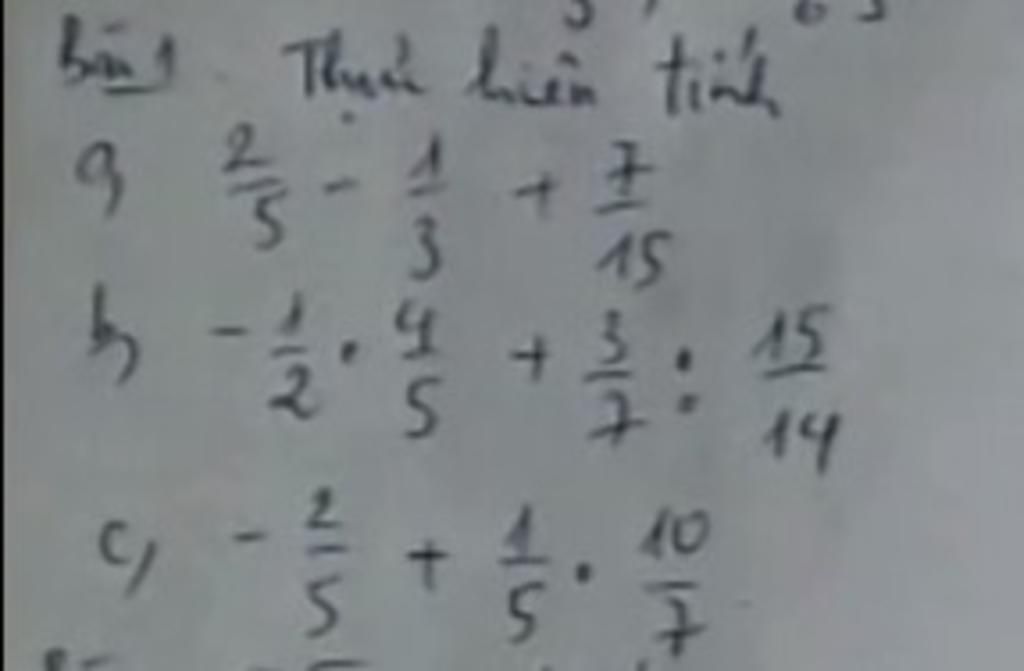 Bài 1. Thực hiện tính
a, 2/5 - 1/3 + 7/15
b, - 1/2 . 4/5 + 3/7 : 15/14
c, - 2/5 + 1/5 . 10/7